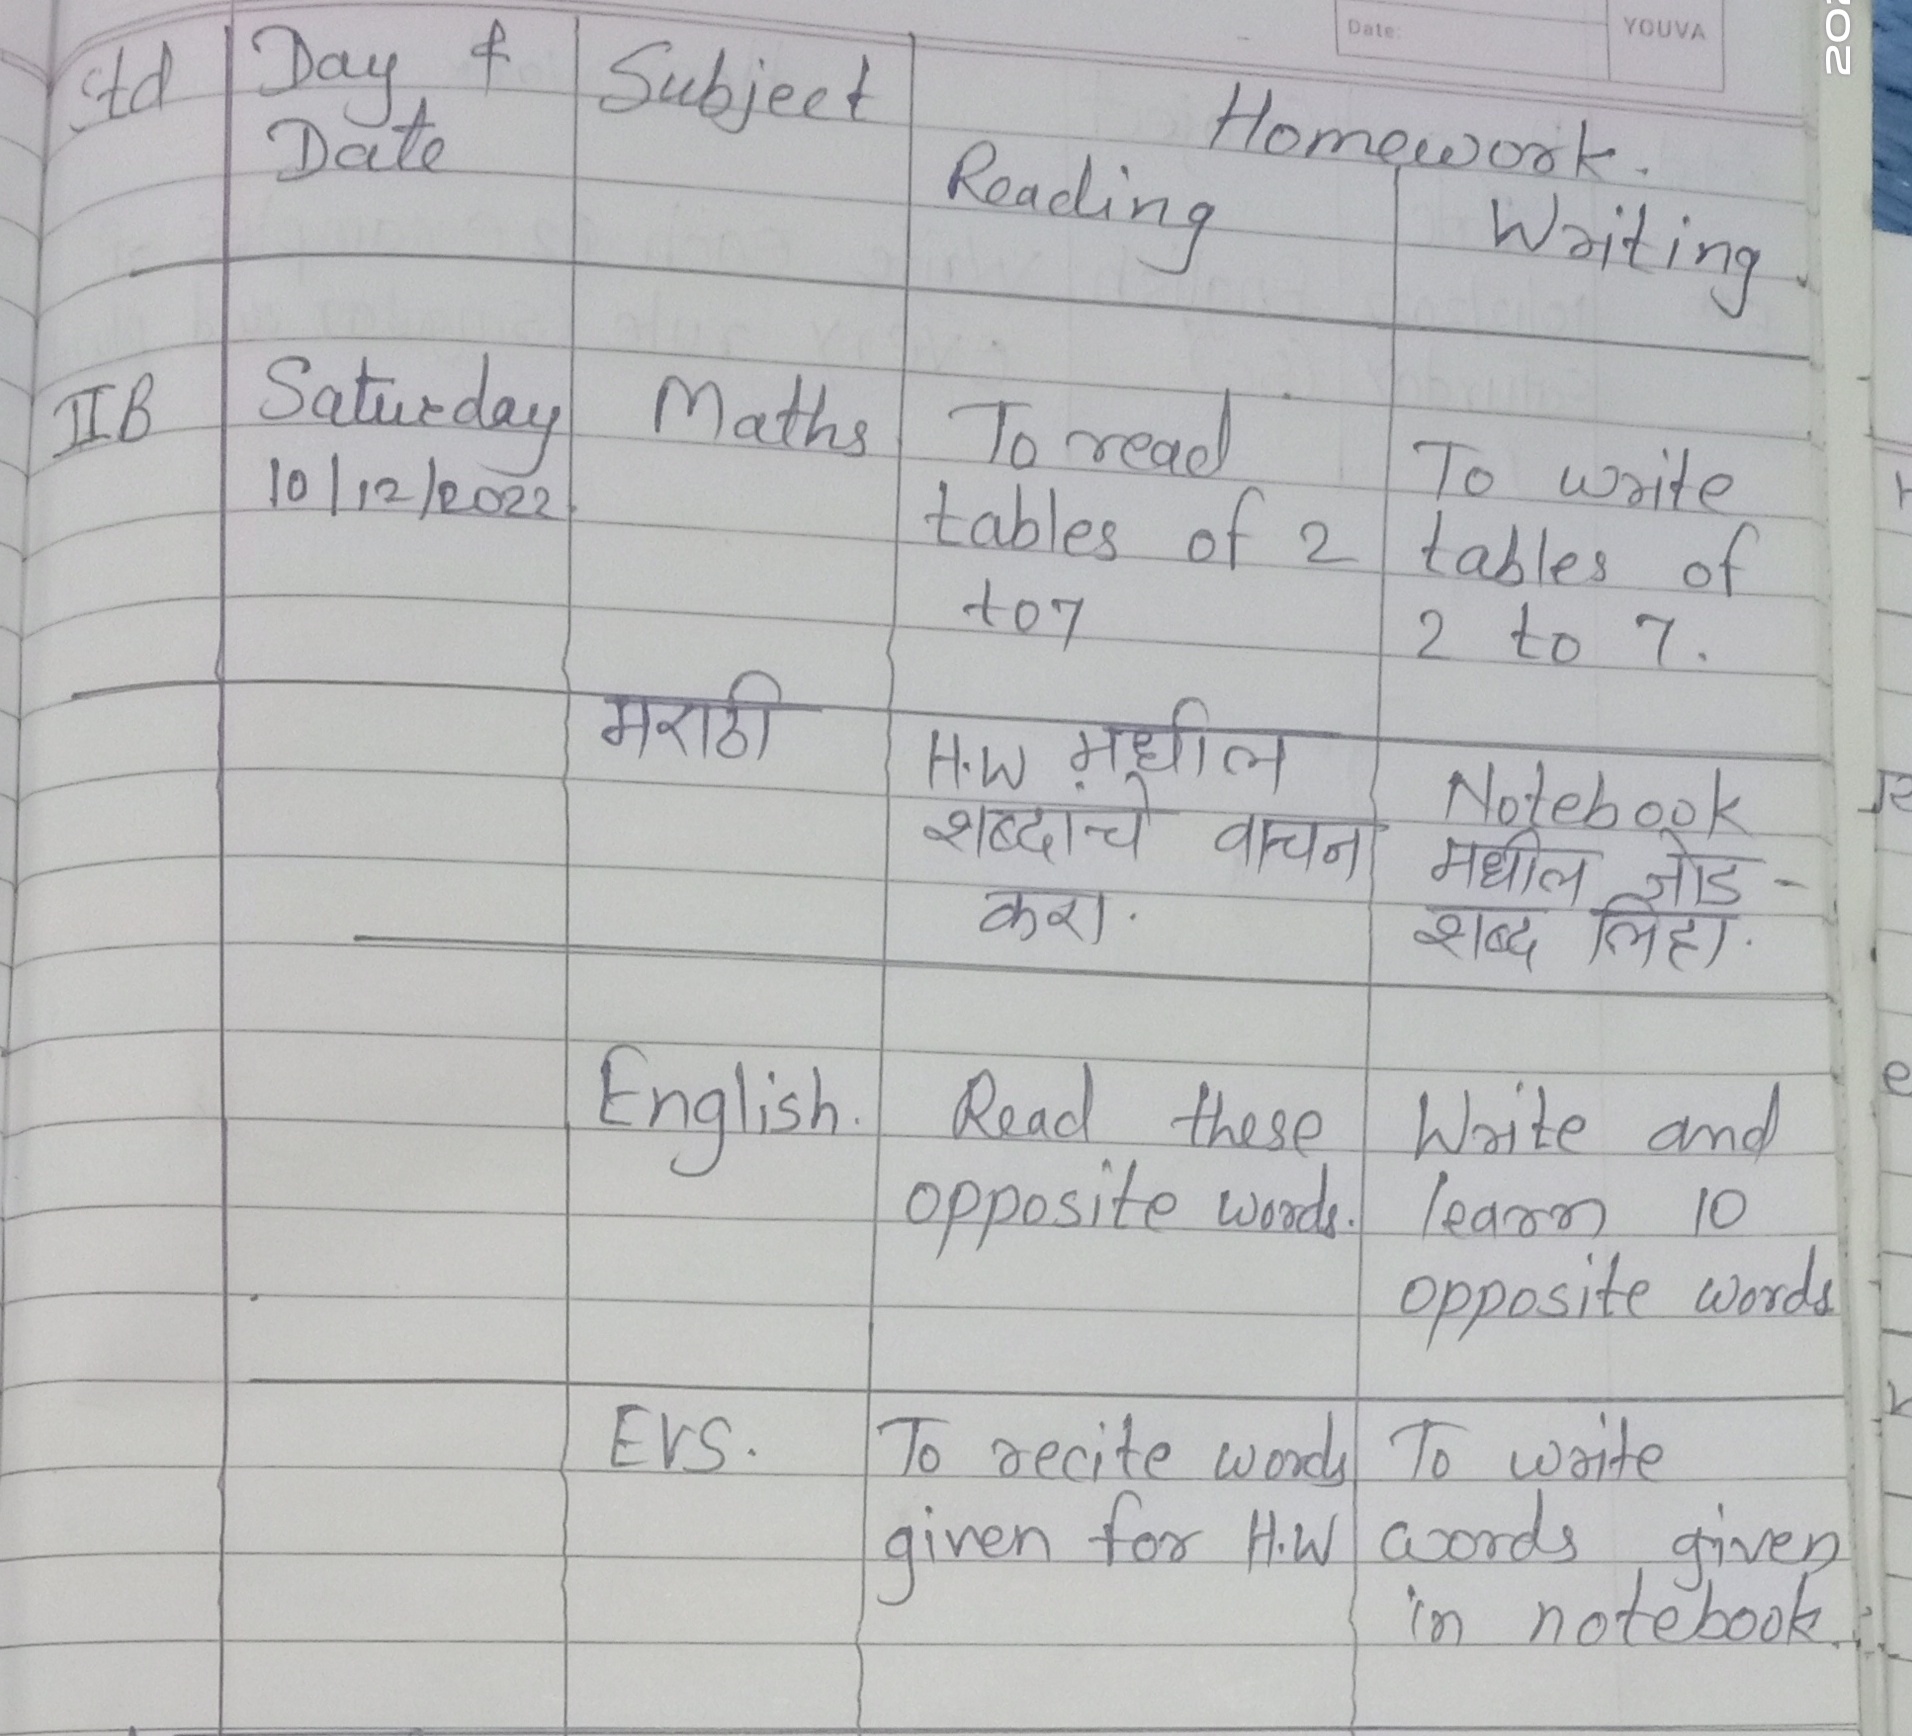 Date:
YOUVA
202
Std
Day &
Date
Subject
Homework.
Reading
Writing
II B
Saturday
10/12/2022
Maths
To read
tables of 2
to 7
To write
tables of
2 to 7.
मराठी
H.W मधील
शब्दाचे वाचन
करा.
Notebook
मधील जोड-
शब्द लिहा.
English.
Read these
opposite words.
Write and
learn 10
opposite words
EVS.
To recite words
given for H.W
To write
words given
in notebook.